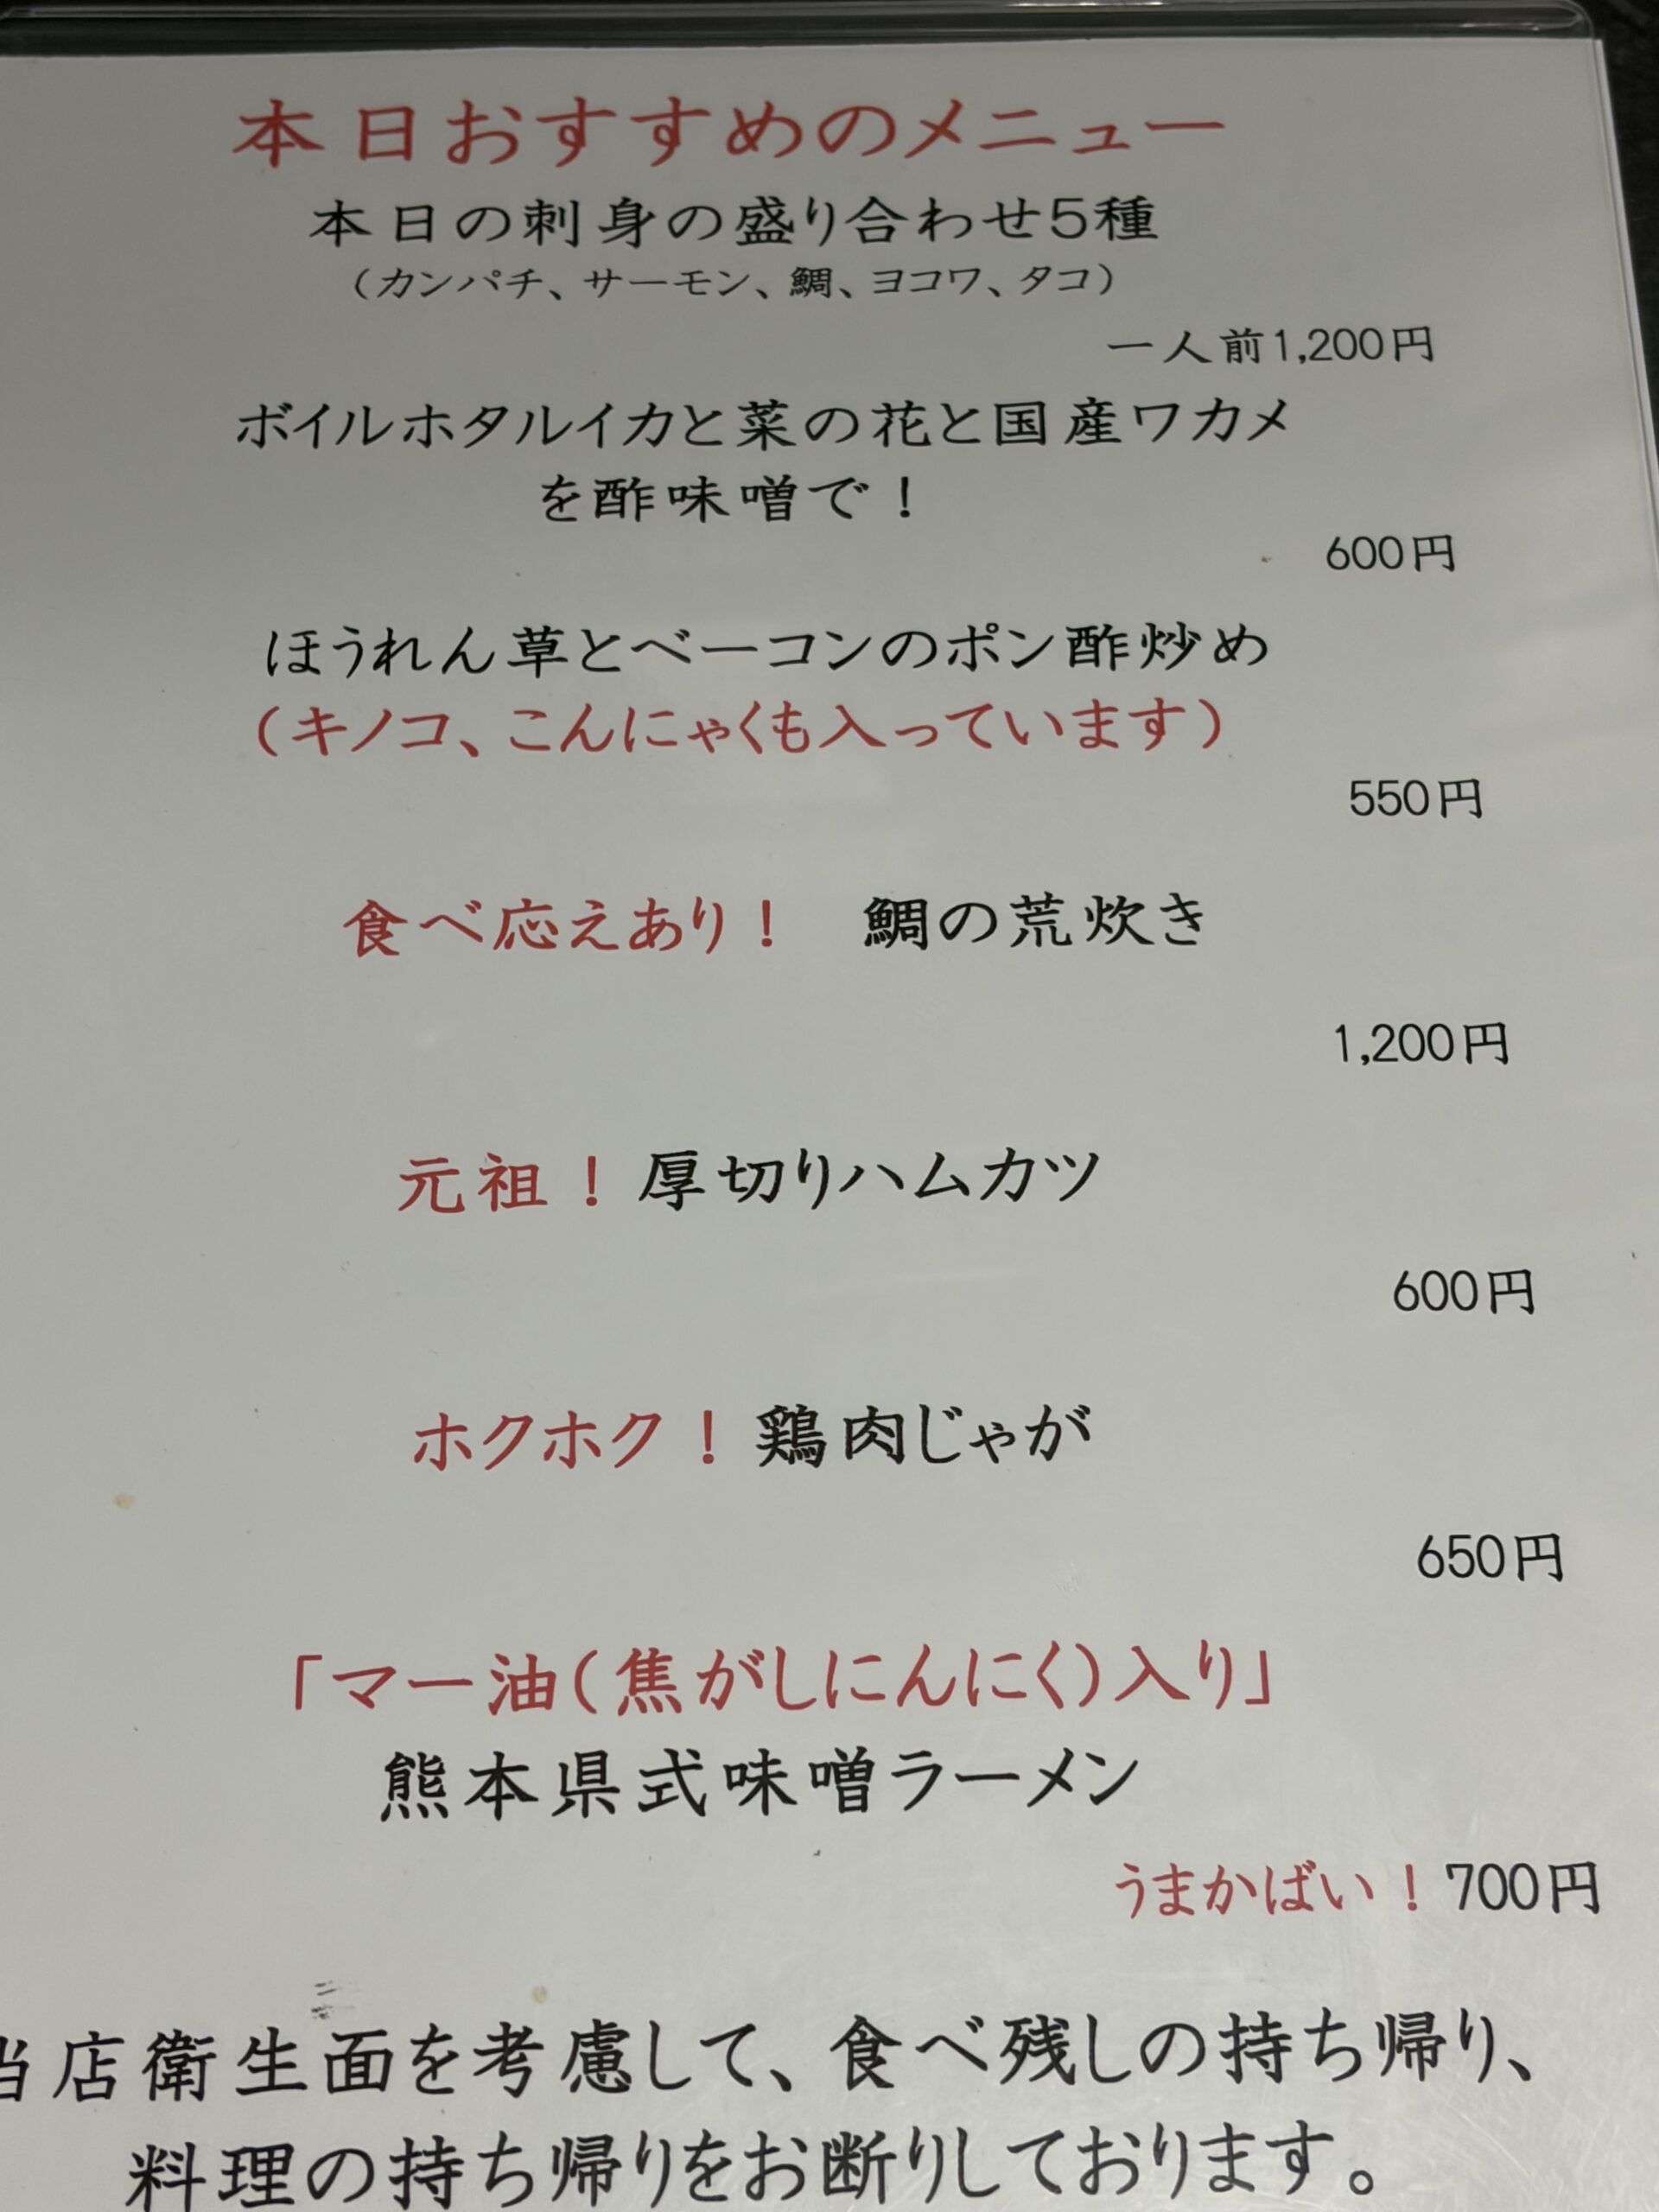 本日おすすめのメニュー
本日の刺身の盛り合わせ5種
（カンパチ、サーモン、鯛、ヨコワ、タコ）
一人前1,200円
ボイルホタルイカと菜の花と国産ワカメ
を酢味噌で！
600円
ほうれん草とベーコンのポン酢炒め
（キノコ、こんにゃくも入っています）
550円
食べ応えあり！　鯛の荒炊き
1,200円
元祖！厚切りハムカツ
600円
ホクホク！鶏肉じゃが
650円
「マー油（焦がしにんにく）入り」
熊本県式味噌ラーメン
うまかばい！700円
当店衛生面を考慮して、食べ残しの持ち帰り、
料理の持ち帰りをお断りしております。